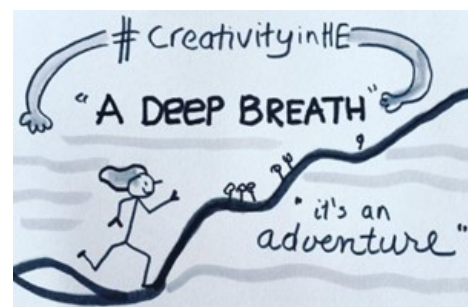 #CreativityinHE
"A DEEP BREATH"
"it's an
adventure"